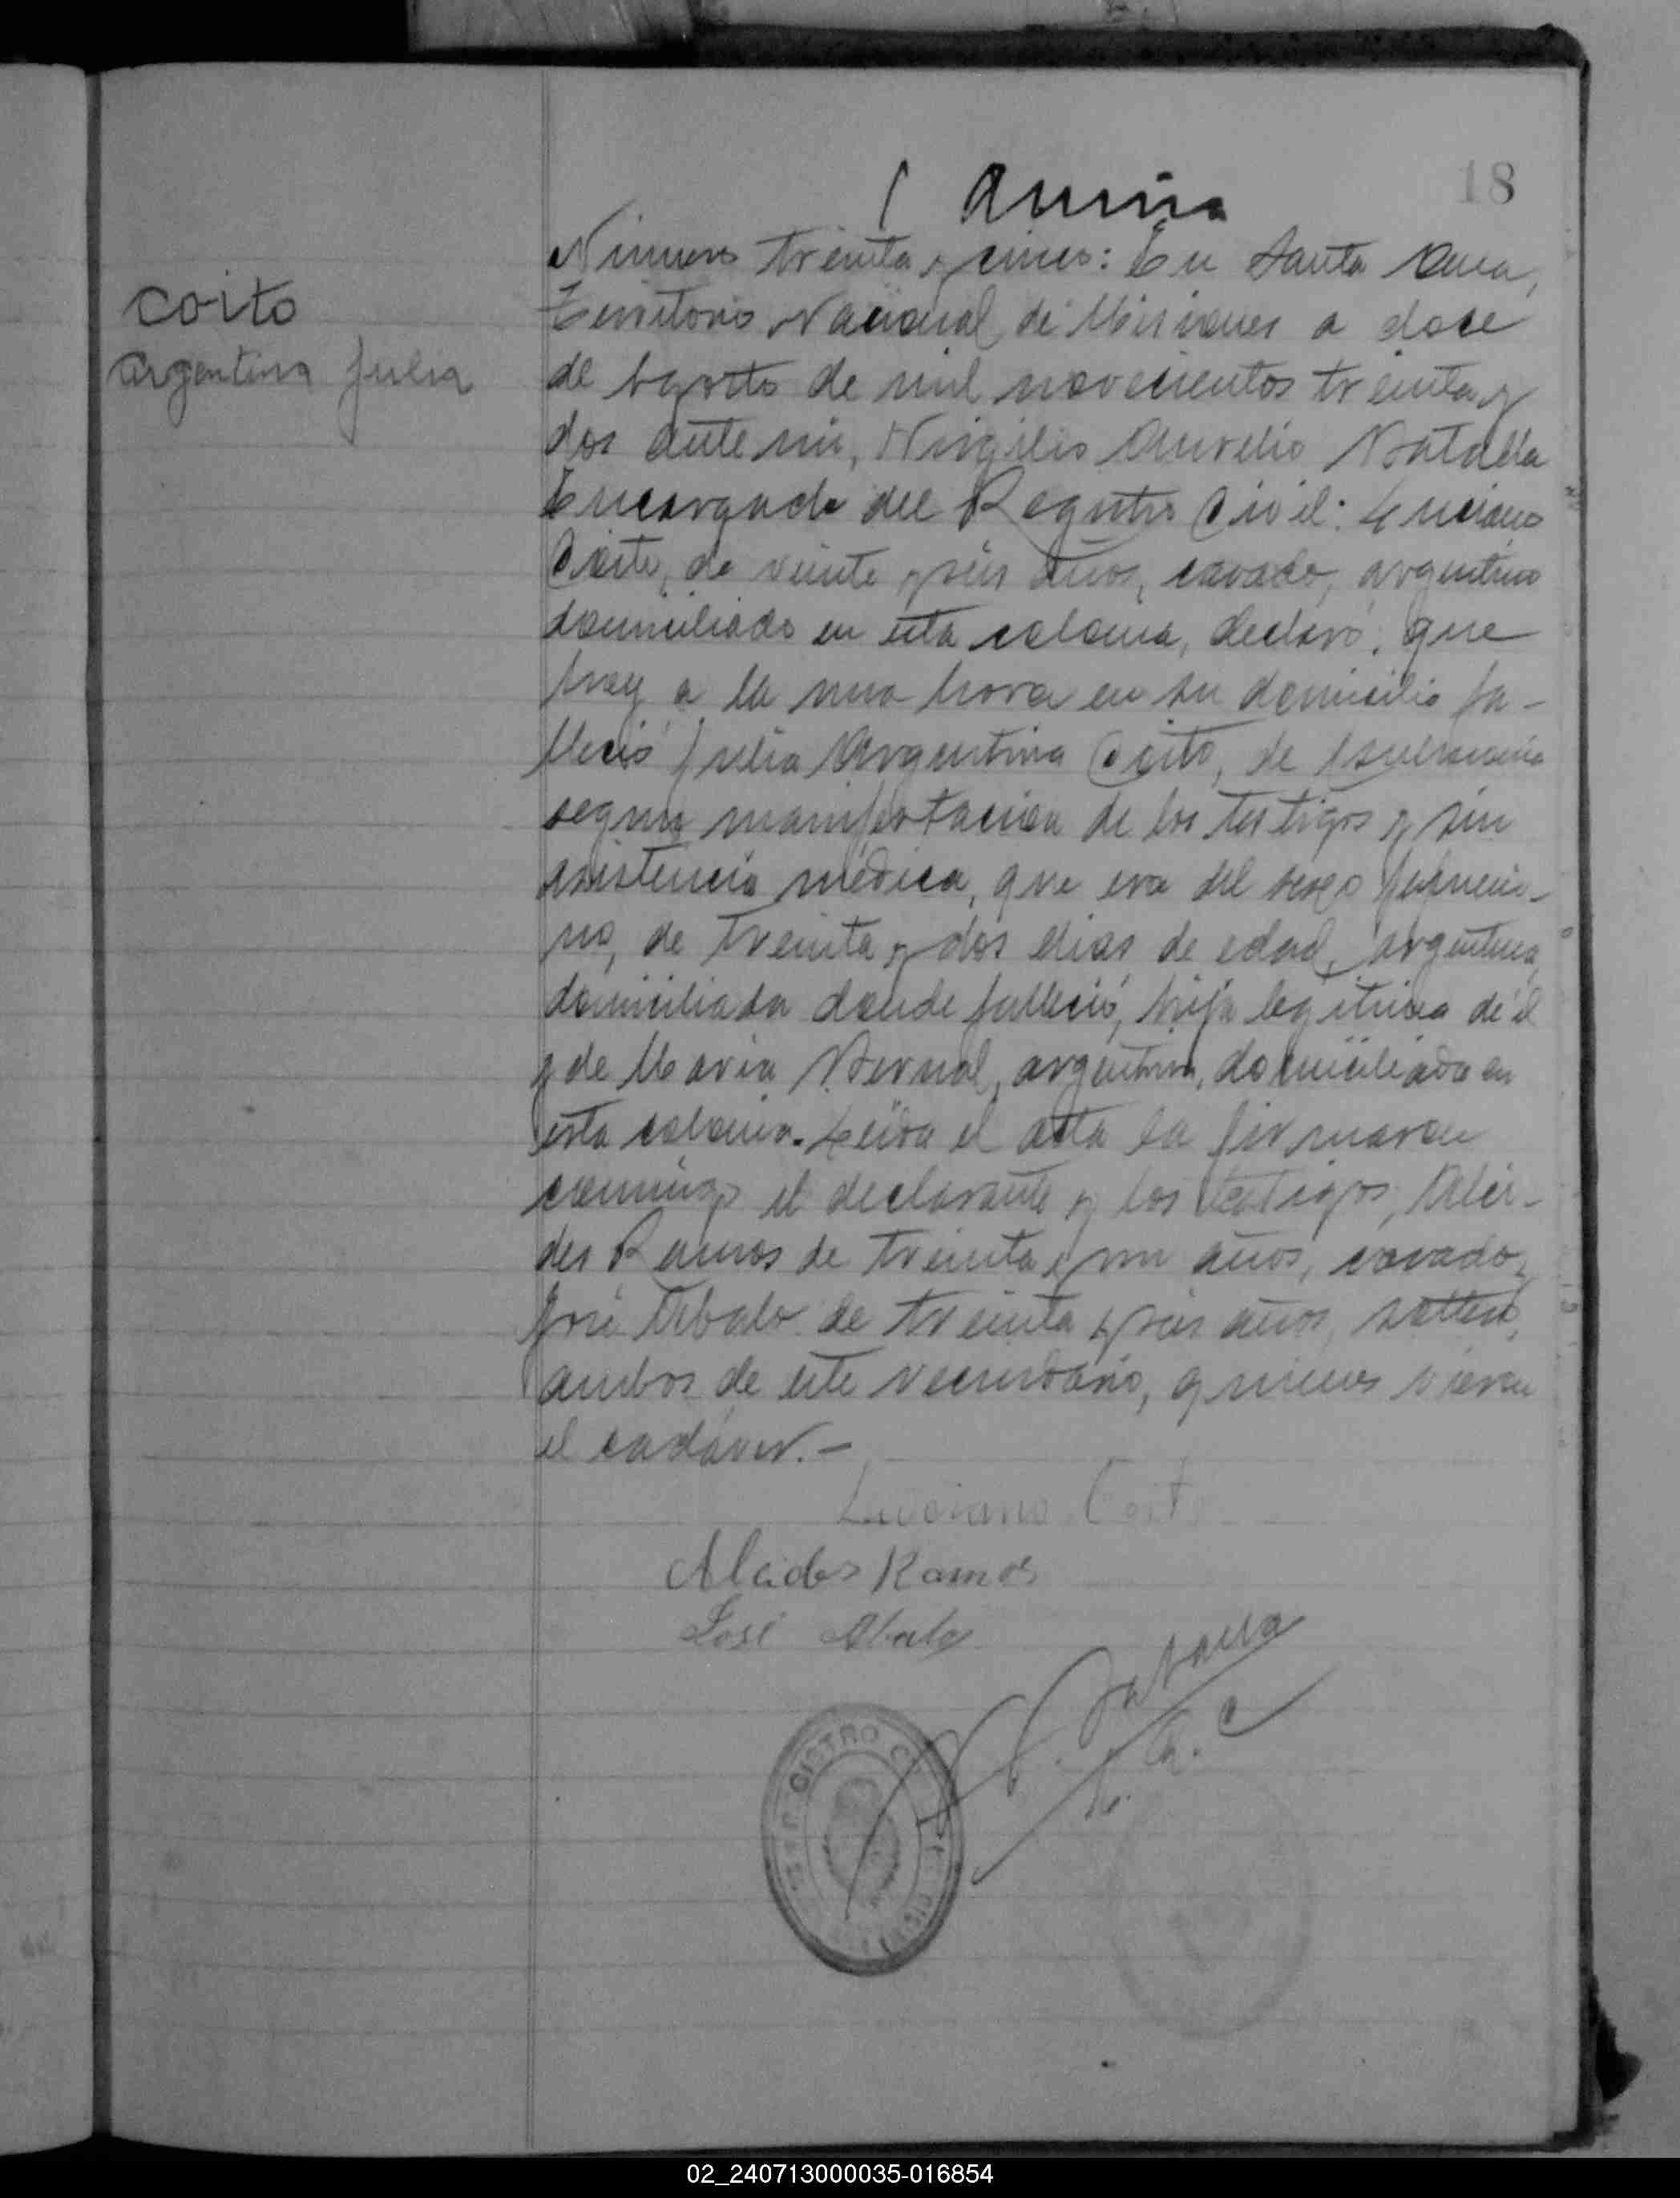 18
Número treinta y cinco: En Santa Ana,
Coito
Territorio Nacional de Misiones a doce
Argentina Julia
de Agosto de mil novecientos treinta y
dos ante mi, Virgilio Aurelio Batalla
Encargado del Registro Civil: Luciano
Coito, de veinte y seis años, casado, argentino
domiciliado en esta colonia, declaró: que
hoy a la una hora en su domicilio fa-
lleció Julia Argentina Coito, de
segun manifestacion de los testigos y sin
asistencia médica, que era del sexo femeni-
no, de treinta y dos dias de edad, argentina,
domiciliada donde falleció, hija legitima de él
y de Maria Bernal, argentina, domiciliada en
esta colonia. Leida el acta la firmaron
conmigo el declarante y los testigos, Alci-
des Ramos de treinta y un años, casado,
José Abalo de treinta y seis años, soltero,
ambos de este vecindario, quienes vieron
el cadáver.-
Luciano Coito
Alcides Ramos
José Abalo
Batalla
REGISTRO
02_240713000035-016854